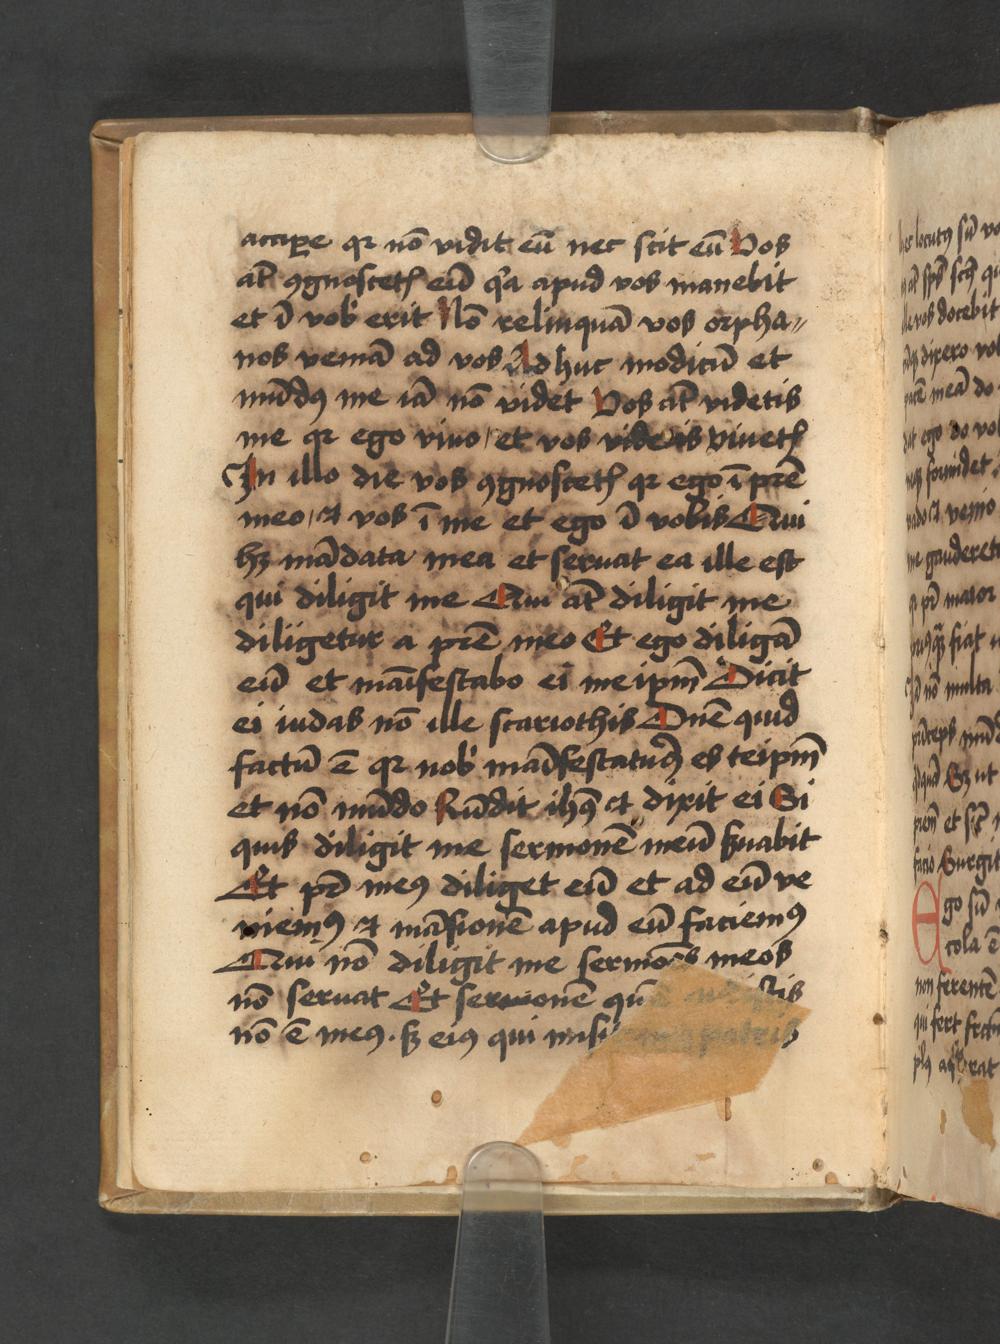 accipe qr nō vidit eū nec scit eū Vos
at̄ ꝯgnoscetꝭ eū qͥa apud vos manebit
et ī vob̄ erit Nō relinquā vos orpha〃
nos veniā ad vos Adhuc modicū et
mūdꝰ me iā nō videt Vos at̄ videtis
me qr ego vivo / et vos viuetꝭ
In illo die vos ꝯgnoscetꝭ qr ego ī pr̄e
meo / ⁊ vos ī me et ego ī vobis Qui
hꝫ mādata mea et seruat ea ille est
qui diligit me Qui at̄ diligit me
diligetur a pr̄e meo Et ego diligā
eū et māifestabo ei meip̄m Dicit
ei iudas nō ille scariothis Dn̄e quid
factū ē qr nob̄ māifestaturꝰ es teip̄m
et nō mūdo Rn̄dit ih̄s ⁊ dixit ei Si
quis diligit me sermonē meū ẜuabit
Et pr̄ meꝰ diliget eū et ad eū ve
niemꝰ ⁊ māsionē apud eū faciemꝰ
Qui nō diligit me sermoēs meos
nō seruat Et sermonē quē
nō ē meꝰ · sꝫ eiꝰ qui misit patris
hec locutꝰ sū vo
at̄ sp̄s sc̄s qu
ille vos docebit
dixero vob
pacē meā do
ego do vob
formidet
vado ⁊ venio
me gauderet
pr̄ maior
priusqͣ fiat
nō multa
prīceps mūd
Sꝫ ut
facio Surgit
Ego sū v
cola ē
non ferentē
qui fert fruc